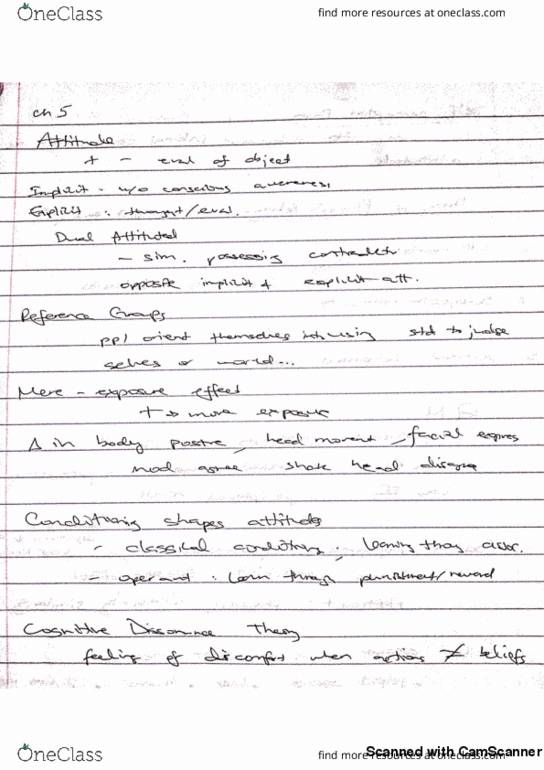 OneClass
find more resources at oneclass.com
ch 5
Attitude
+ - eval of object
Implicit - w/o conscious awareness
Explicit : thought/eval.
Dual Attitudes
- sim. possessing
opposite implicit + explicit att.
Reference Groups
ppl orient themselves using std to judge
selves or world...
Mere-exposure effect
+ → more exposure
Δ in body posture, head movement, facial express
nod agree shake head disagree
Conditioning shapes attitudes
- classical conditioning : learning through
- operant : learn through punishment/reward
Cognitive Dissonance Theory
feeling of discomfort when actions ≠ beliefs
OneClass
find more resources at oneclass.com
Scanned with CamScanner